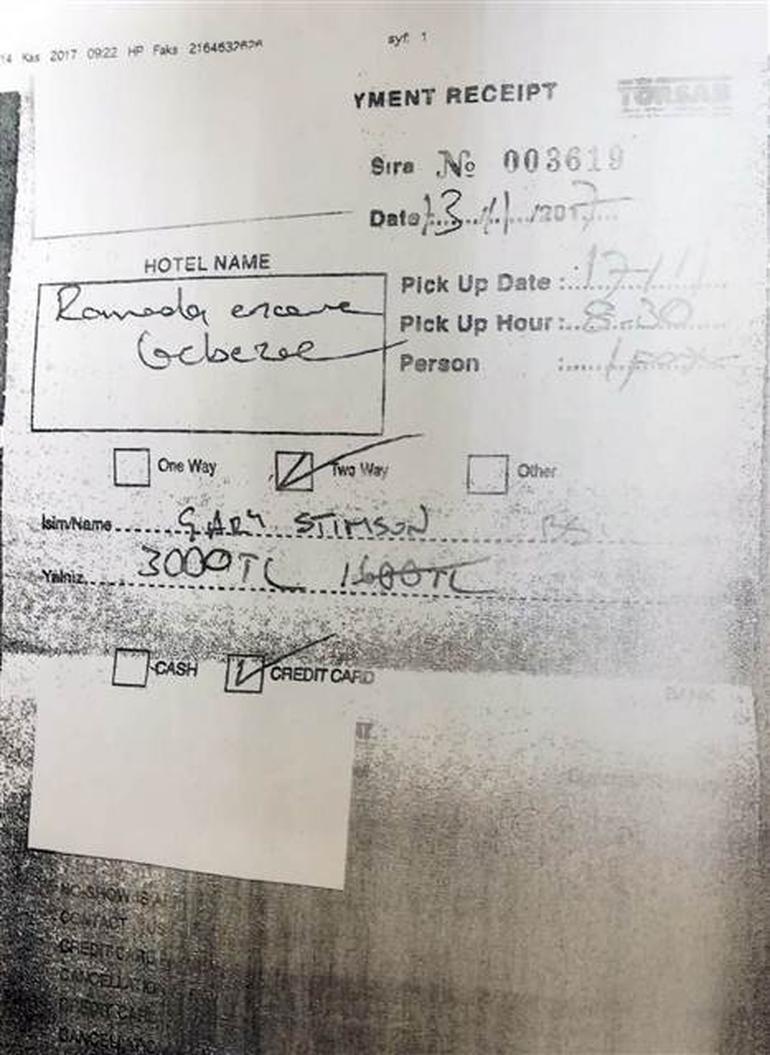 14 Kas 2017 09:22 HP Faks
syf. 1
YMENT RECEIPT
TÜRSAB
Sıra No 003619
Date 13/11/2017
HOTEL NAME
Ramada encore
Gebze
Pick Up Date : 17-11
Pick Up Hour : 8:30
Person :
One Way Two Way Other
İsim/Name GARY STIMSON
Yalnız 3000TL 1600TL
CASH CREDIT CARD
BANK
NO-SHOW IS
CONTACT US
CREDIT CARD
CANCELLATION
CREDIT CARD